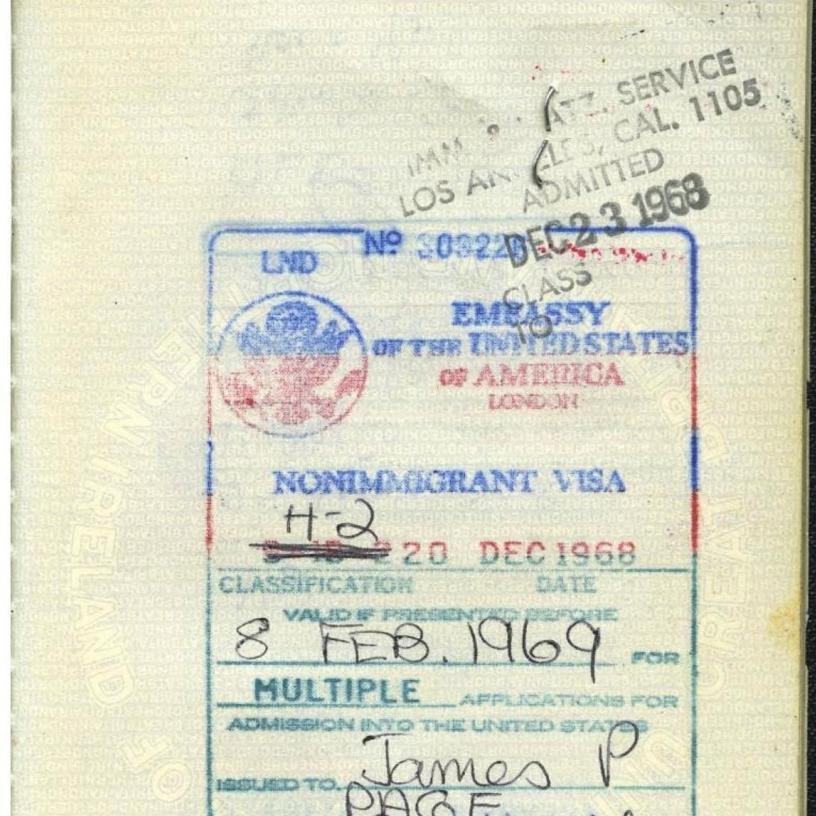 IMM. & NATZ. SERVICE
LOS ANGELES, CAL. 1105
ADMITTED
DEC 23 1968
CLASS
TO
LND
Nº 30322
EMBASSY
OF THE UNITED STATES
OF AMERICA
LONDON
NONIMMIGRANT VISA
H-2
20 DEC 1968
CLASSIFICATION DATE
VALID IF PRESENTED BEFORE
8 FEB. 1969 FOR
MULTIPLE APPLICATIONS FOR
ADMISSION INTO THE UNITED STATES
ISSUED TO James P
PAGE